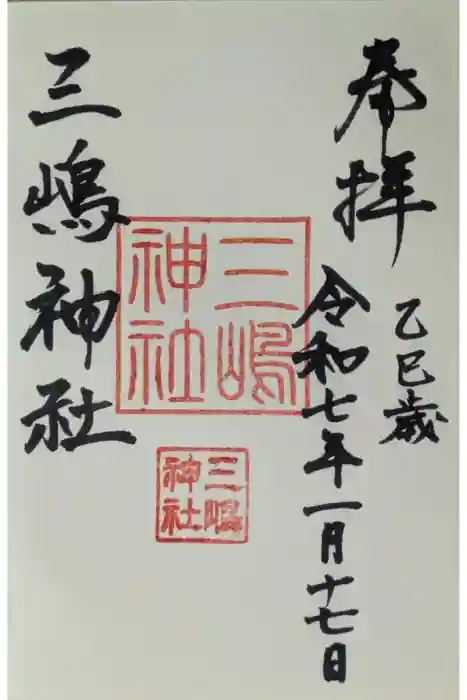 奉拝
乙巳歳
令和七年一月十七日
三嶋神社
三嶋
神社
三嶋
神社